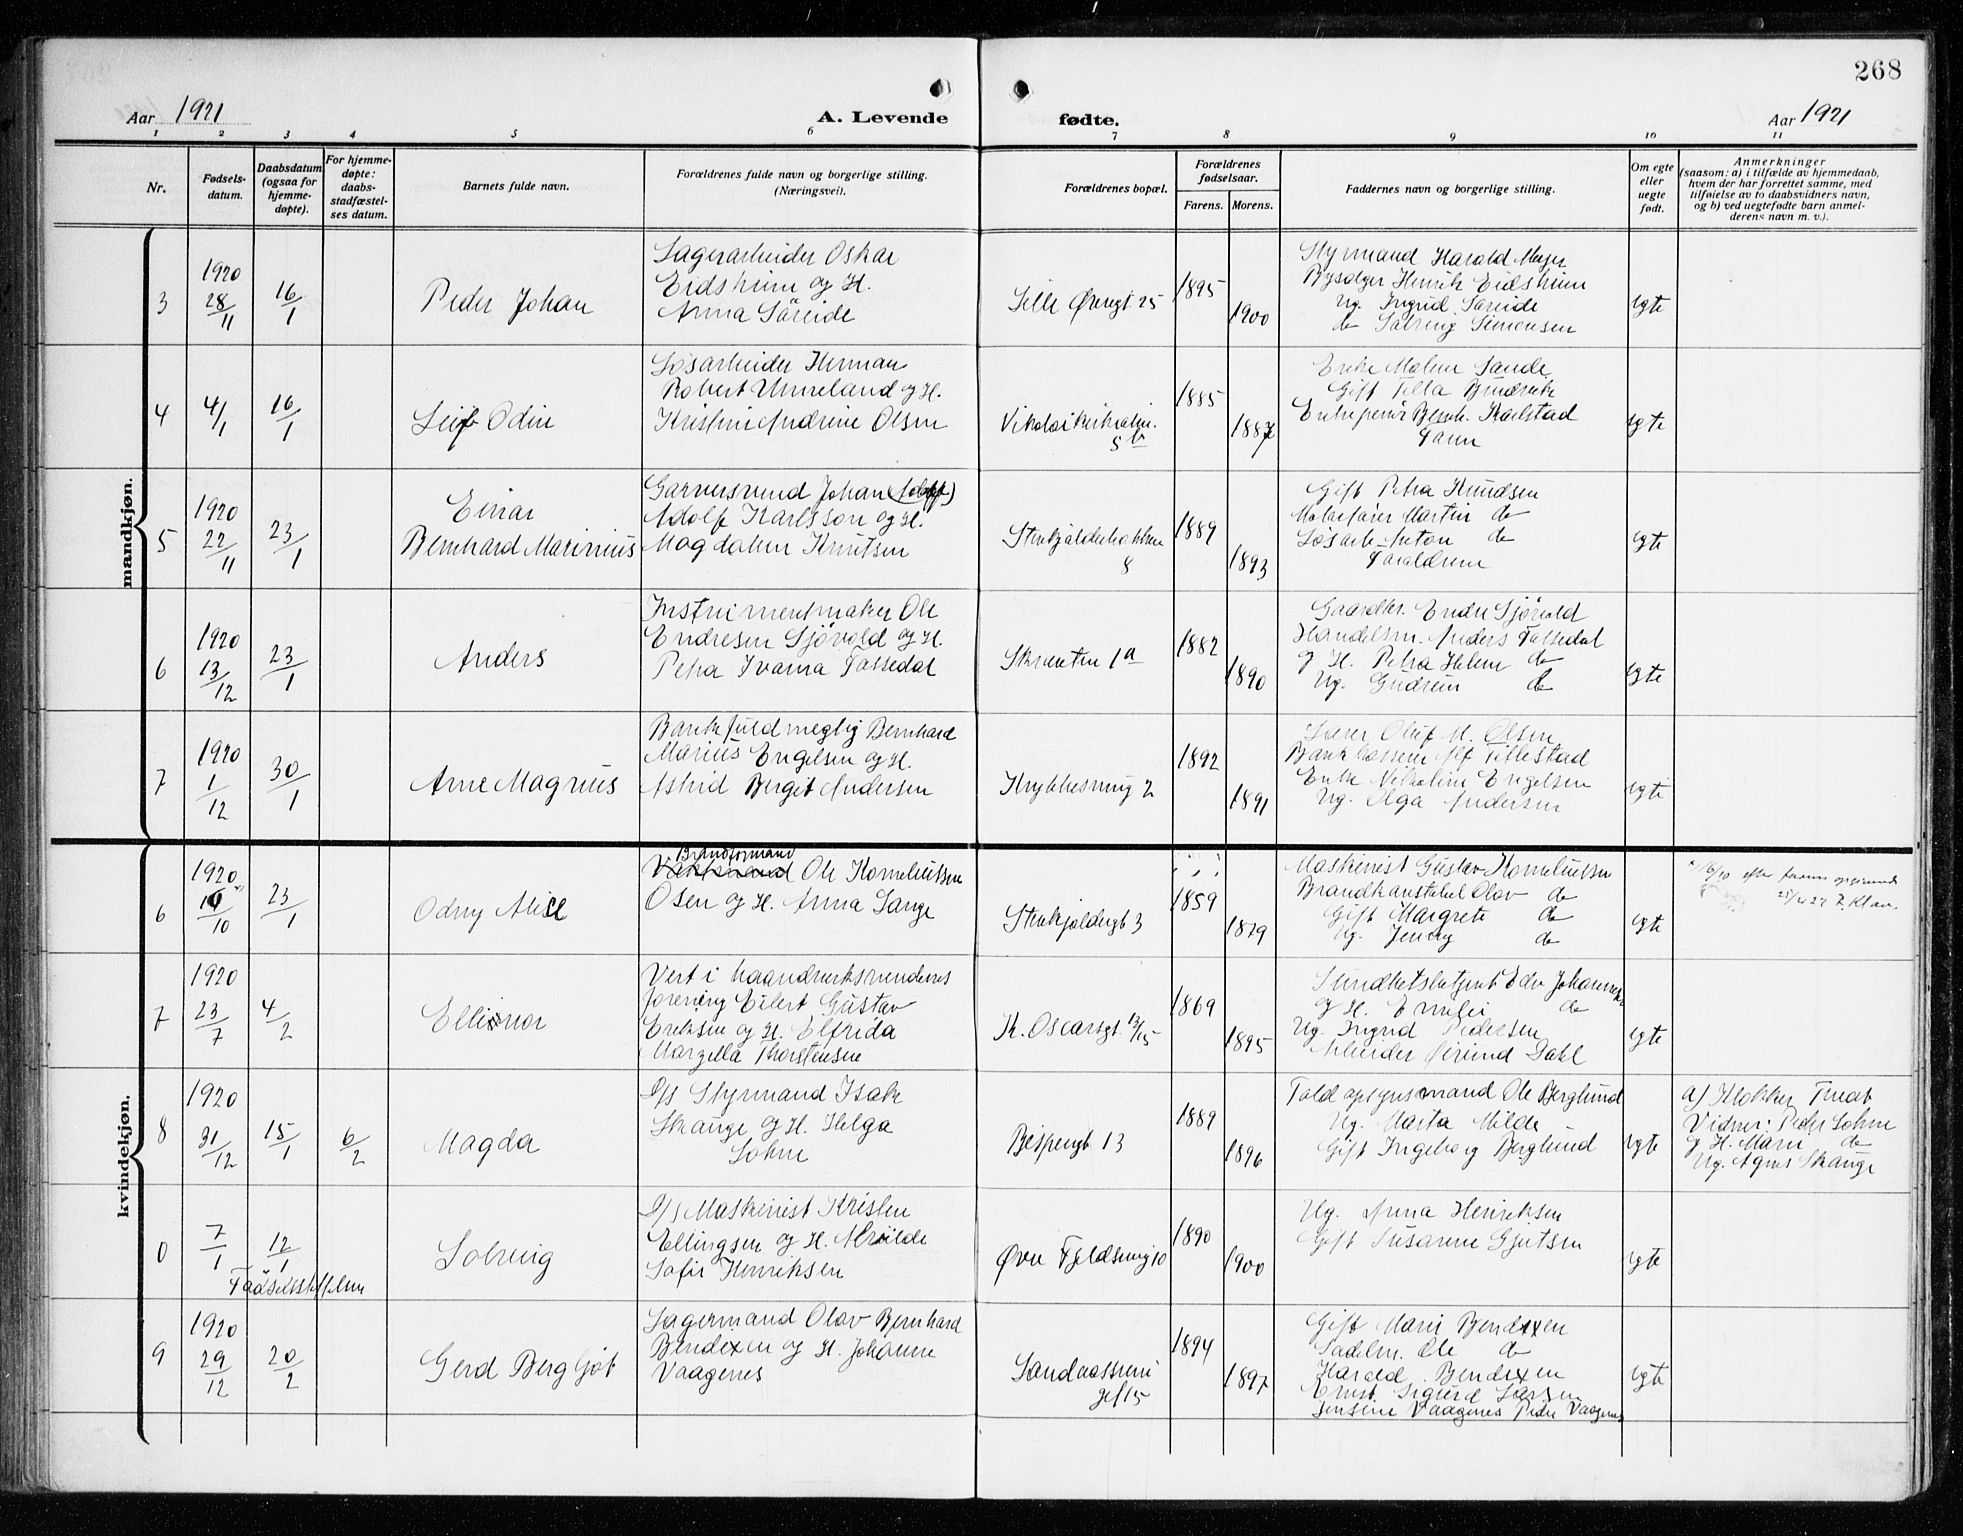 268
Aar 1921
A. Levende
fødte.
Aar 1921
1 2 3 4 5 6 7 8 9 10 11
Nr.
Fødsels-
datum.
Daabsdatum
(ogsaa for
hjemme-
døpte).
For hjemme-
døpte:
daabs-
stadfæstel-
ses datum.
Barnets fulde navn.
Forældrenes fulde navn og borgerlige stilling.
(Næringsvei).
Forældrenes bopæl.
Forældrenes
fødselsaar.
Farens.
Morens.
Faddernes navn og borgerlige stilling.
Om egte
eller
uegte
født.
Anmerkninger
(saasom: a) i tilfælde av hjemmedaab,
hvem der har forrettet samme, med
tilføielse av to daabsvidners navn,
og b) ved uegtefødte barn anmel-
derens navn m. v.).
mandkjøn.
3
1920
28/11
16/1
Peder Johan
Lagerarbeider Oskar
Eidsheim og H.
Anna Søreide
Lille Øvregt 25
1895
1900
Styrmand Harald Meyer
Bysælger Henrik Eidsheim
Ug. Ingrid Søreide
do Solveig Simonsen
egte
4
4/1
16/1
Leif Odin
Løsarbeider Herman
Robert Unneland og H.
Kristine Andrine Olsen
Nikolaikirkealm.
5b
1885
1887
Enke Malene Sande
Gift Tilla Brudvik
Entreprenør Bernh. Karlstad
Fann
egte
5
1920
22/11
23/1
Einar
Bernhard Marinius
Garversvend Johan (Adolf)
Adolf Karlsson og H.
Magdalene Knutsen
Stenkjelderbakken
8
1889
1893
Gift Petra Knudsen
Motorfører Martin do
Løsarb. Anton do
Faraldsen
egte
6
1920
13/12
23/1
Anders
Instrumentmaker Ole
Endresen Sjövold og H.
Petra Ivarna Tossedal
Skrænten 1a
1882
1890
Gaardbr. Endre Sjövold
Handelsm. Anders Tossedal
og H. Petra Helene do
Ug. Gudrun do
egte
7
1920
1/12
30/1
Arne Magnus
Bankfuldmegtig Bernhard
Marius Engelsen og H.
Astrid Bergit Andersen
Krybbesmug 2
1892
1891
Lærer Oluf M. Olsen
Bankkasserer Alf Tillestad
Enke Nikoline Engelsen
Ug. Olga Andersen
egte
kvindekjøn.
6
1920
16/10
23/1
Odny Alise
Brandformand
Ole Korneliussen
Osen og H. Anna Lange
Stenkjeldergt 3
1859
1879
Maskinist Gustav Korneliussen
Brandkonstabel Olav do
Gift Margrete do
Ug. Jenny do
egte
16/10 efter farens opgivende
25/4 27
7
1920
23/7
4/2
Ellinor
Vert i haandverksvendenes
forening Eilert Gustav
Eriksen og H. Elfrida
Marzella Thorstensen
K. Oscarsgt 13/15
1869
1895
Sundhetsbetjent Edv Johannes
og H. Emilie do
Ug. Ingrid Pedersen
Arbeider Øivind Dahl
egte
8
1920
31/12
15/1
6/2
Magda
D/s Styrmand Isak
Skauge og H. Helga
Solem
Bispengt 13
1889
1896
Toldopsynsmand Ole Berglund
Ug. Marta Milde
Gift Ingeborg Berglund
egte
a) Klokker Tveit
Vidner: Peder Solem
og H. Marie do
Ug. Agnes Skauge
0
7/1
12/1
Fødselsstiftelsen
Solveig
D/s Maskinist Kristen
Ellingsen og H. Alvilde
Sofie Henriksen
Øvre Fjeldsmug 10
1890
1900
Ug. Anna Henriksen
Gift Susanne Gjertsen
egte
9
1920
29/12
20/2
Gerd Bergljot
Lagermand Olav Bernhard
Bendixen og H. Johanne
Vaagenes
Sandvaasveien
15
1894
1897
Gift Marie Bendixen
Sadelm. Ole do
Harald Bendixen
Ernst Sigurd Larsen
Jensine Vaagenes Peder Vaagenes
egte